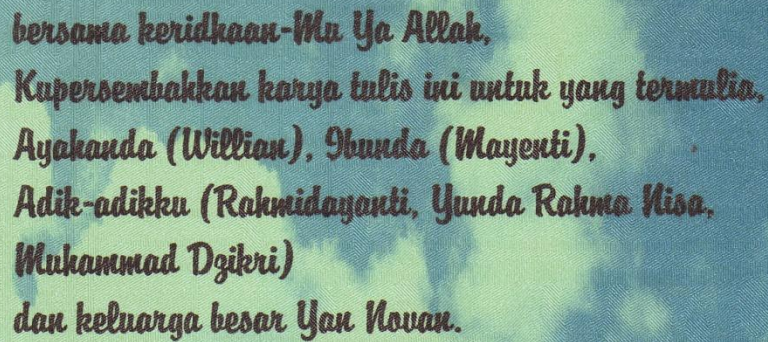 bersama keridhaan-Mu Ya Allah,
Kupersembahkan karya tulis ini untuk yang termulia,
Ayahanda (Willian), Ibunda (Mayenti),
Adik-adikku (Rahmidayanti, Yunda Rahma Nisa,
Muhammad Dzikri)
dan keluarga besar Yan Novan.